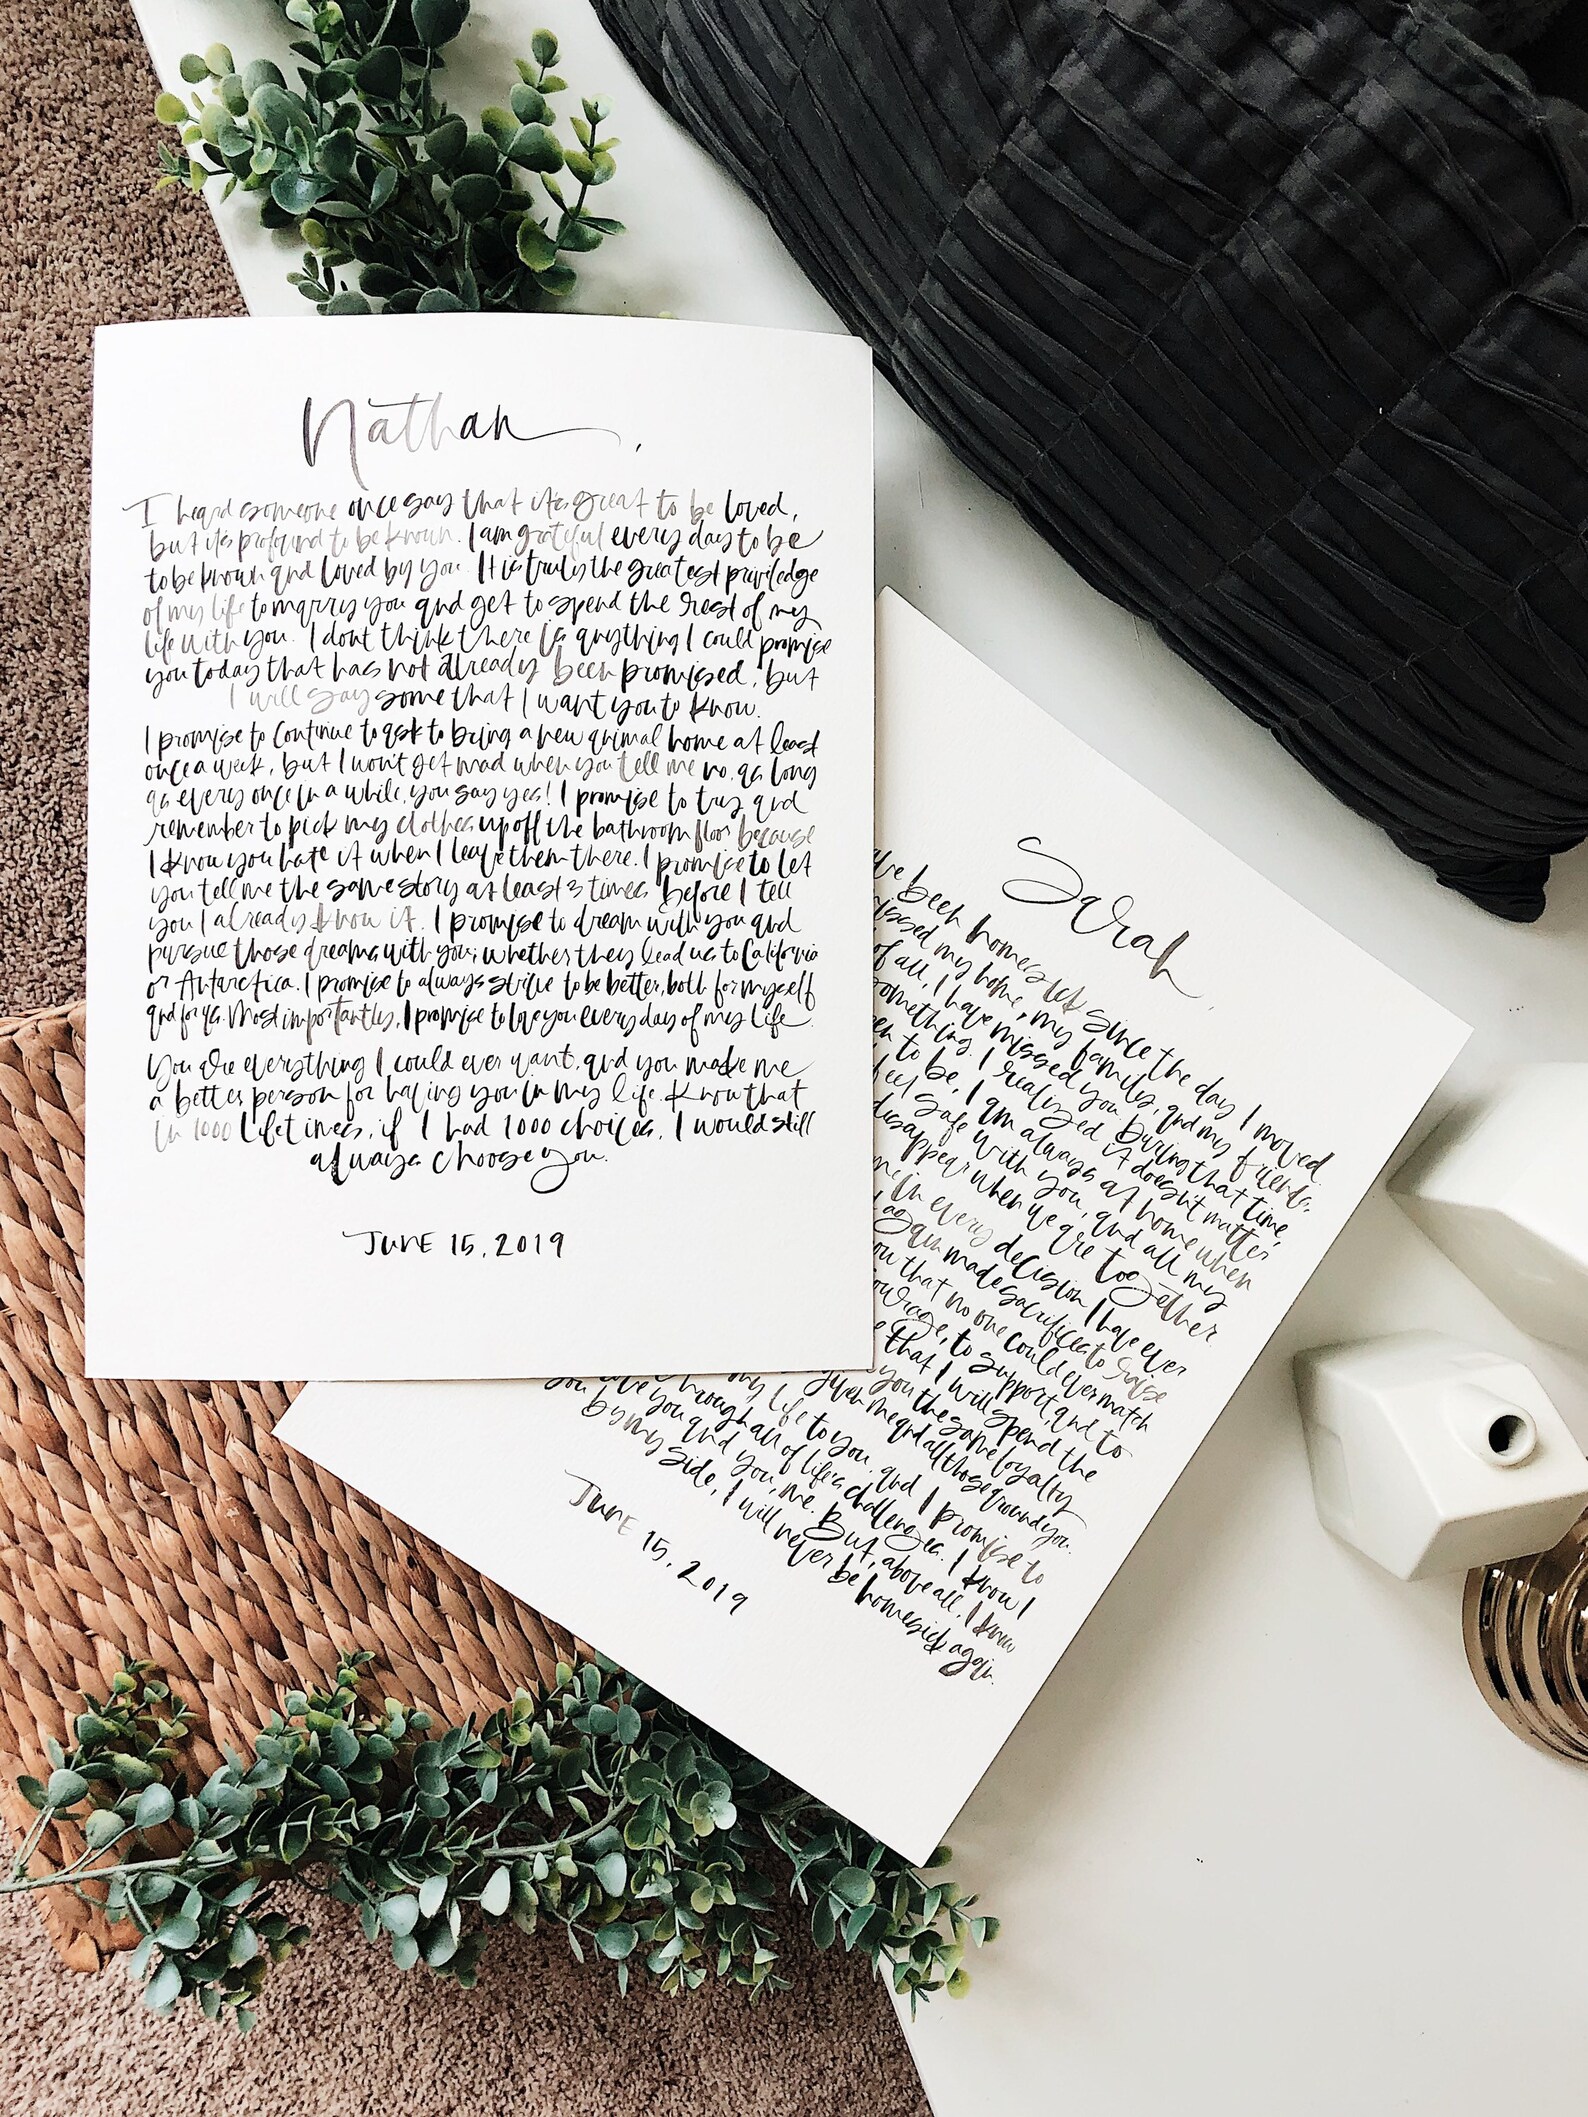 Nathan,
I heard someone once say that it's great to be loved,
but it's profound to be known. I am grateful every day to be
to be known and loved by you. It is truly the greatest priviledge
of my life to marry you and get to spend the rest of my
life with you. I dont think there is anything I could promise
you today that has not already been promised, but
I will say some that I want you to know.
I promise to continue to ask to bring a new animal home at least
once a week, but I won't get mad when you tell me no, as long
as every once in a while, you say yes! I promise to try and
remember to pick my clothes up off the bathroom floor because
I know you hate it when I leave them there. I promise to let
you tell me the same story at least 3 times before I tell
you I already know it. I promise to dream with you and
pursue those dreams with you; whether they lead us to California
or Antarctica. I promise to always strive to be better, both for myself
and for us. Most importantly, I promise to love you every day of my life.
You are everything I could ever want, and you make me
a better person for having you in my life. Know that
in 1000 lifetimes, if I had 1000 choices, I would still
always choose you.
June 15, 2019
Sarah,
been homesick since the day I moved.
missed my home, my family, and my friends.
of all, I have missed you. During that time,
something. I realized it doesn't matter
to be, I am always at home when
safe with you, and all my
disappear when we are together.
in every decision I have ever
again made sacrifices to raise
that no one could ever match
courage, to support, and to
that I will spend the
you the same loyalty
given me and all those around you.
my life to you, and I promise to
through all of life's challenges. I know I
have you and you, me. But, above all, I know
by my side, I will never be homesick again.
June 15, 2019